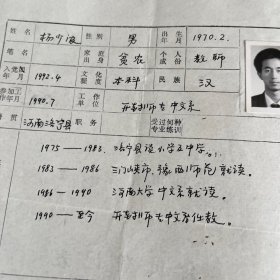 姓名 杨少波 性别 男 出生年月 1970.2.
曾名 家庭出身 贫农 个人成份 教师
入党团年月 1992.4 文化程度 本科 民族 汉
参加工作年月 1990.7 工作单位 开封师专中文系
籍贯 河南洛宁县 职务 受过何种专业练训
1975 — 1983. 洛宁县读小学及中学。
1983 — 1986 三门峡市豫西师范就读。
1986 — 1990 河南大学中文系就读。
1990 — 至今 开封师专中文系任教。